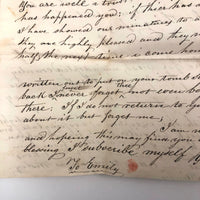 You are well & tow
has happened you: if there has a
I have showed our miniatures to a
they are highly pleased and they
half, the next time is come hom
written out to put on your tomb st
back I never forget thee, not even
there: If I do not return to
about it but forget me;
I am
and hoping this may find you
blessing I subscribe myself
To Emily